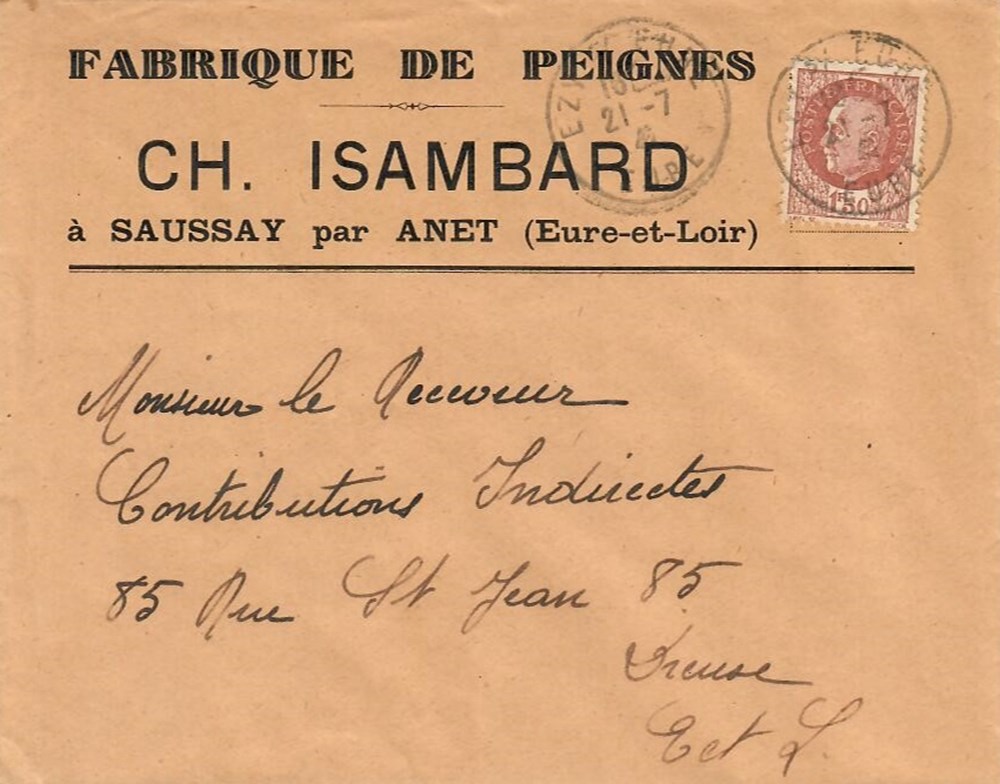 FABRIQUE DE PEIGNES
CH. ISAMBARD
à SAUSSAY par ANET (Eure-et-Loir)
21 -7
EURE
POSTES FRANÇAISES
1F50
EURE
Monsieur le Receveur
Contributions Indirectes
85 Rue St Jean 85
Dreux
E et L.